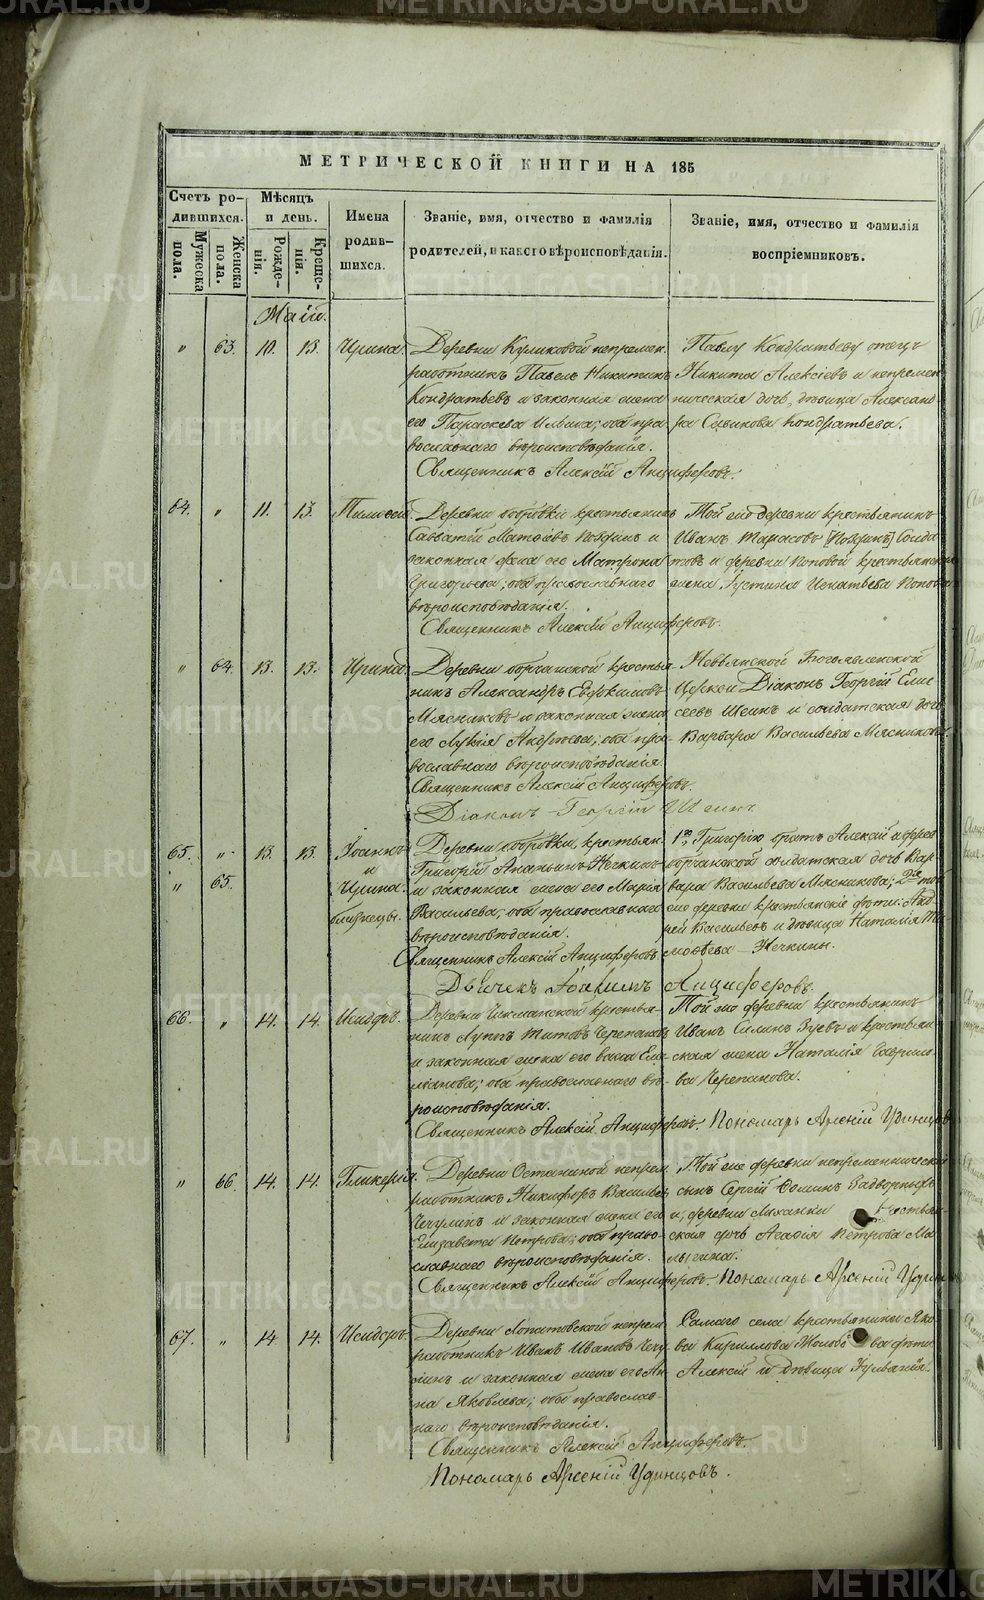 METRIKI.GASO-URAL.RU
МЕТРИЧЕСКОЙ КНИГИ НА 185
Счетъ ро-
дившихся.
Мужеска
пола.
Женска
пола.
Мѣсяцъ
и день.
Рожде-
нія.
Креще-
нія.
Имена
родив-
шихся.
Званіе, имя, отчество и фамилія
родителей, и какого вѣроисповѣданія.
Званіе, имя, отчество и фамилія
воспріемниковъ.
Маій.
" 63. 10. 13. Ирина.
Деревни Куликовой непремен.
работникъ Павелъ Никитинъ
Кондратьевъ и законная жена
его Параскева Ильина; оба пра-
вославнаго вѣроисповѣданія.
Священникъ Алексій Анциферовъ.
Павлу Кондратьеву отецъ
Никита Алексіевъ и непремен-
ническая дочь, дѣвица Александ-
ра Кондратьева.
64. " 11. 13. Тимоѳей
Деревни крестьянинъ
Савватій Матѳіевъ и
законная жена его Матрона
Григорьева; оба православнаго
вѣроисповѣданія.
Священникъ Алексій Анциферовъ.
Той же деревни крестьянинъ
Иванъ Тарасовъ Солда-
товъ и деревни Поповой крестьянская
жена Устинья Игнатьева Попова
" 64. 13. 13. Ирина.
Деревни крестья-
нинъ Александръ Евдокимовъ
Мясниковъ и законная жена
его Лукія Андреева; оба пра-
вославнаго вѣроисповѣданія.
Священникъ Алексій Анциферовъ.
Діаконъ Георгій Шеинъ
Невьянской Богоявленской
Церкви Діаконъ Георгій Ели-
сеевъ Шеинъ и солдатская дочь
Варвара Васильева Мясникова.
65. " 13. 13. Іоаннъ
и
" 65. Ирина.
близнецы.
Деревни крестьян.
Григорій Ананьинъ Нечкинъ
и законная жена его Марія
Васильева, оба православнаго
вѣроисповѣданія.
Священникъ Алексій Анциферовъ
Дьячекъ Іоакимъ Анциферовъ.
1е, Григорію братъ Алексій и дерев
солдатская дочь Вар-
вара Васильева Мясникова; 2е той
же деревни крестьянскіе дѣти: Анд-
рей Васильевъ и дѣвица Наталія Ти-
моѳеева Нечкины.
66. " 14. 14. Исидоръ.
Деревни крестья-
нинъ Луппъ Титовъ Черепановъ
и законная жена его Емел-
ьянова; оба православнаго вѣ-
роисповѣданія.
Священникъ Алексій Анциферовъ. Пономарь Арсеній Удинцовъ
Той же деревни крестьянинъ
Иванъ Силинъ Зуевъ и крестьян-
ская жена Наталія Гаврило-
ва Черепанова.
" 66. 14. 14. Гликерія.
Деревни Останиной непрем.
работникъ Никифоръ Васильев
Чечулинъ и законная жена его
Елизавета Петрова; оба право-
славнаго вѣроисповѣданія.
Священникъ Алексій Анциферовъ. Пономарь Арсеній Удинцов
Той же деревни непременническій
сынъ Сергій Ѳоминъ
и, деревни крестьян-
ская дочь Агаѳія Петрова Ма-
лыгина.
67. " 14 14. Исидоръ
Деревни Лопатовской непрем.
работникъ Иванъ Ивановъ Чечу-
линъ и законная жена его Ан-
на Яковлева; оба православ-
наго вѣроисповѣданія.
Священникъ Алексій Анциферовъ.
Пономарь Арсеній Удинцовъ.
Самаго села крестьянина Яко-
ва Кириллова дѣти:
Алексій и дѣвица Іуліанія.